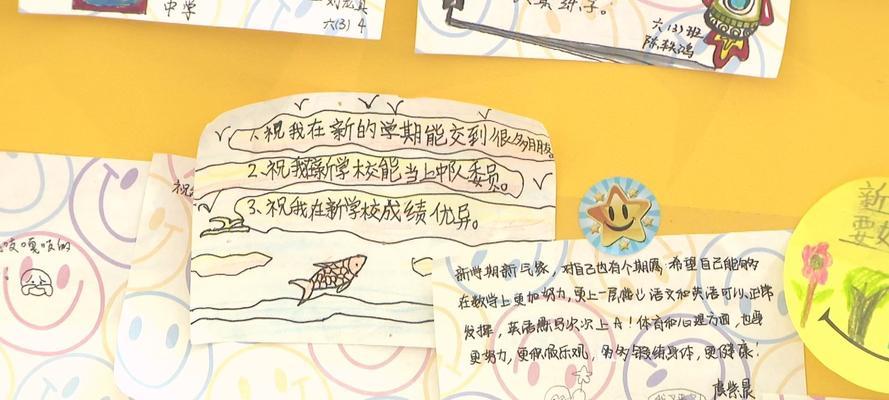 中学
六(3) 4
六(3)班
1、祝我在新的学期能交到很多朋友。
2、祝我在新学校能当上中队委员。
3、祝我在新学校成绩优异。
祝
吱嘎吱的
新
要
新时期新气象，对自己也有个期属 希望自己能够
在数学上更加努力，更上一层楼！语文和英语可以正常
发挥，英语默写次次上A！体育和心理方面，也要
更努力，更积极乐观，多多锻练身体，更健康！